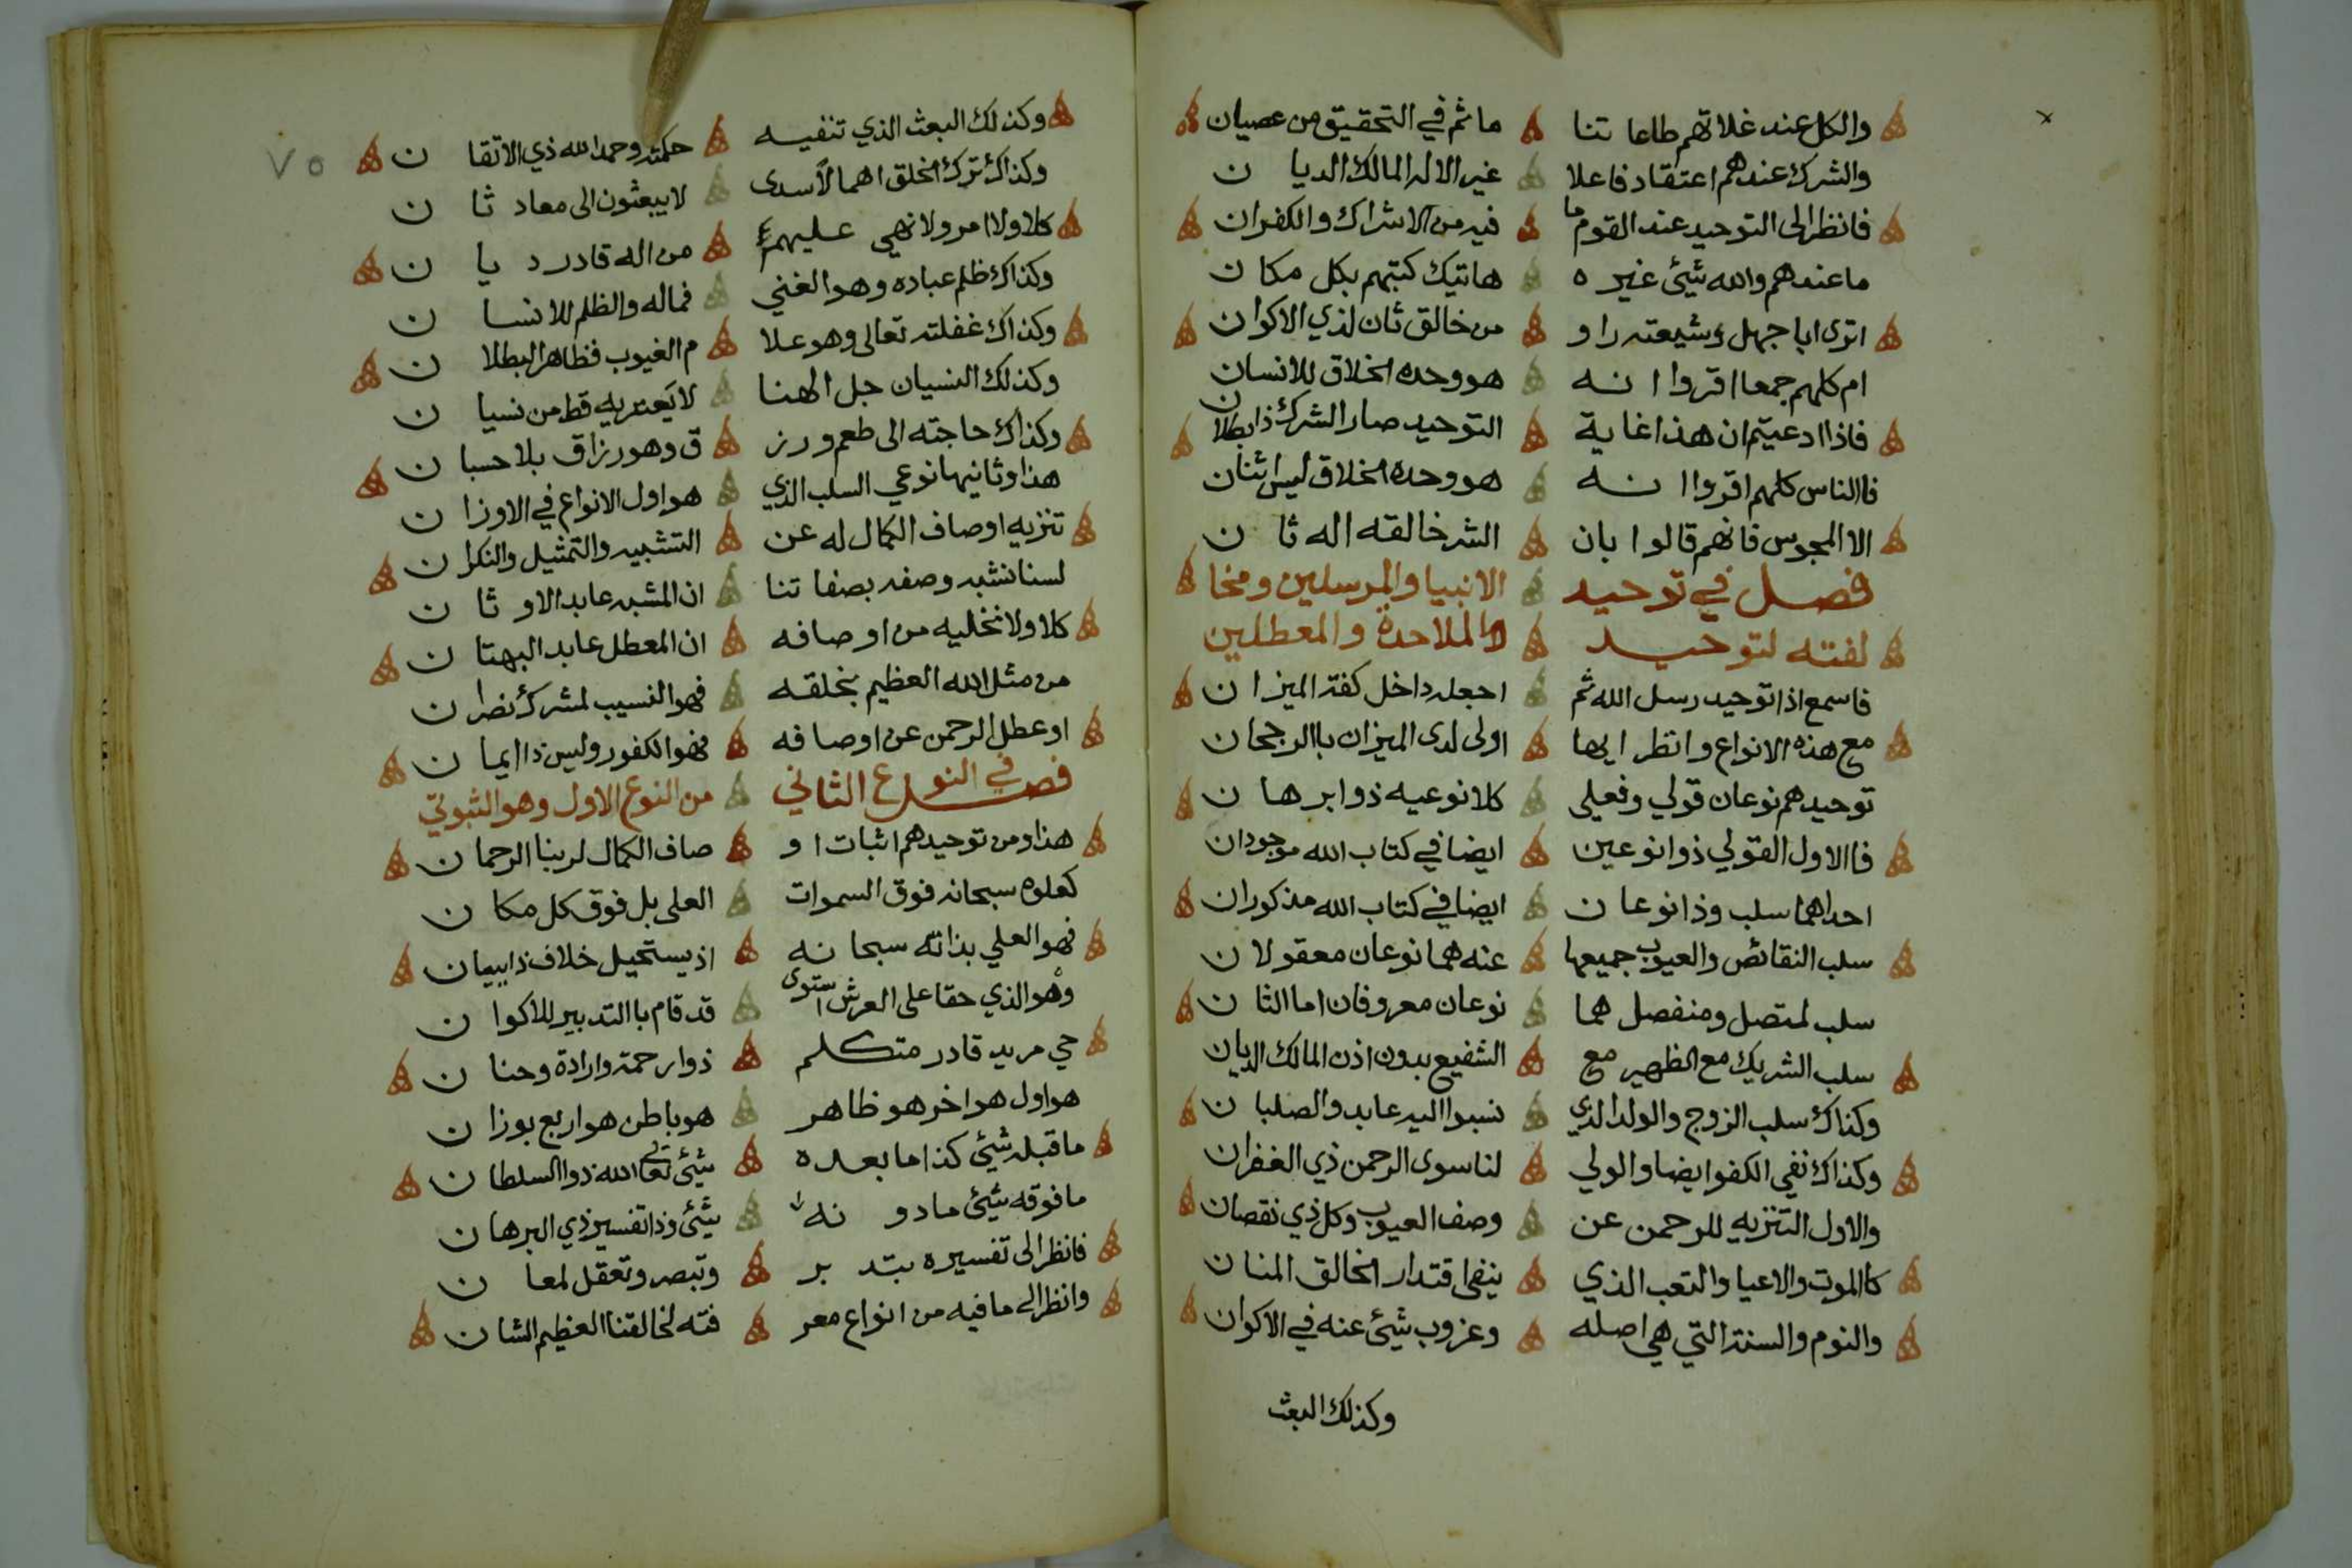 والكل عند غلاتهم طاعا تنا ما ثم في التحقيق من عصيان
والشرك عندهم اعتقاد فاعلا غير الاله المالك الديا ن
فانظر الى التوحيد عند القوم ما فيه من الاشراك والكفران
ما عندهم والله شيئ غيره هاتيك كتبهم بكل مكا ن
اترى ابا جهل وشيعته را و من خالق ثان لذي الاكوان
ام كلهم جمعا اقروا انه هو وحده الخلاق للانسان
فاذا ادعيتم ان هذا غاية التوحيد صار الشرك ذا بطلان
فاالناس كلهم اقروا انه هو وحده الخلاق ليس اثنان
الا المجوس فانهم قالوا بان الشر خالقه اله ثا ن
فصل في توحيد الانبيا والمرسلين ومخا
لفته لتوحيد الملاحدة والمعطلين
فاسمع اذا توحيد رسل الله ثم اجعله داخل كفة الميزان
مع هذه الانواع وانظر ايها اولى لدى الميزان باالرجحان
توحيدهم نوعان قولي وفعلي كلا نوعيه ذوا برها ن
فاالاول القولي ذوا نوعين ايضا في كتاب الله موجودان
احداهما سلب وذا نوعا ن ايضا في كتاب الله مذكوران
سلب النقائص والعيوب جميعها عنه هما نوعان معقولا ن
سلب لمتصل ومنفصل هما نوعان معروفان اما الثا ن
سلب الشريك مع الظهير مع الشفيع بدون اذن المالك الديان
وكذاك سلب الزوج والولد الذي نسبوا اليه عابد والصلبا ن
وكذاك نفي الكفو ايضا والولي لنا سوى الرحمن ذي الغفران
والاول التنزيه للرحمن عن وصف العيوب وكل ذي نقصان
كاالموت والاعيا والتعب الذي ينفي اقتدار الخالق المنا ن
والنوم والسنة التي هي اصله وعزوب شيئ عنه في الاكوان
وكذلك البعث
٧٥
وكذلك البعث الذي تنفيه حكمته وحمد الله ذي الاتقا ن
وكذاك ترك الخلق اهمالا سدى لا يبعثون الى معاد ثا ن
كلا ولا امر ولا نهي عليهم من اله قادر د يا ن
وكذاك ظلم عباده وهو الغني فما له والظلم للانسا ن
وكذاك غفلته تعالى وهو علا م الغيوب فظاهر البطلا ن
وكذلك النسيان جل الهنا لا يعتريه قط من نسيا ن
وكذاك حاجته الى طعم ورز ق وهو رزاق بلا حسبا ن
هذا وثانيها نوعي السلب الذي هو اول الانواع في الاوزا ن
تنزيه اوصاف الكمال له عن التشبيه والتمثيل والنكرا ن
لسنا نشبه وصفه بصفا تنا ان المشبه عابد الاو ثا ن
كلا ولا نخليه من اوصافه ان المعطل عابد البهتا ن
من مثل الله العظيم بخلقه فهو النسيب لمشرك نصرا ن
او عطل الرحمن عن اوصافه فهو الكفور وليس ذا ايما ن
فصل في النوع الثاني من النوع الاول وهو الثبوتي
هذا ومن توحيدهم اثبات او صاف الكمال لربنا الرحما ن
كعلوه سبحانه فوق السموات العلى بل فوق كل مكا ن
فهو العلي بذاته سبحا نه اذ يستحيل خلاف ذا ببيان
وهو الذي حقا على العرش استوى قد قام باالتدبير للاكوا ن
حي مريد قادر متكلم ذوا رحمة وارادة وحنا ن
هو اول هو اخر هو ظاهر هو باطن هو اربع بوزا ن
ما قبله شيئ كذا ما بعده شيئ تعالى الله ذوا السلطا ن
ما فوقه شيئ ما دو نه شيئ وذا تفسير ذي البرها ن
فانظر الى تفسيره بتد بر وتبصر وتعقل لمعا ن
وانظر الى ما فيه من انواع معر فته لخالقنا العظيم الشا ن